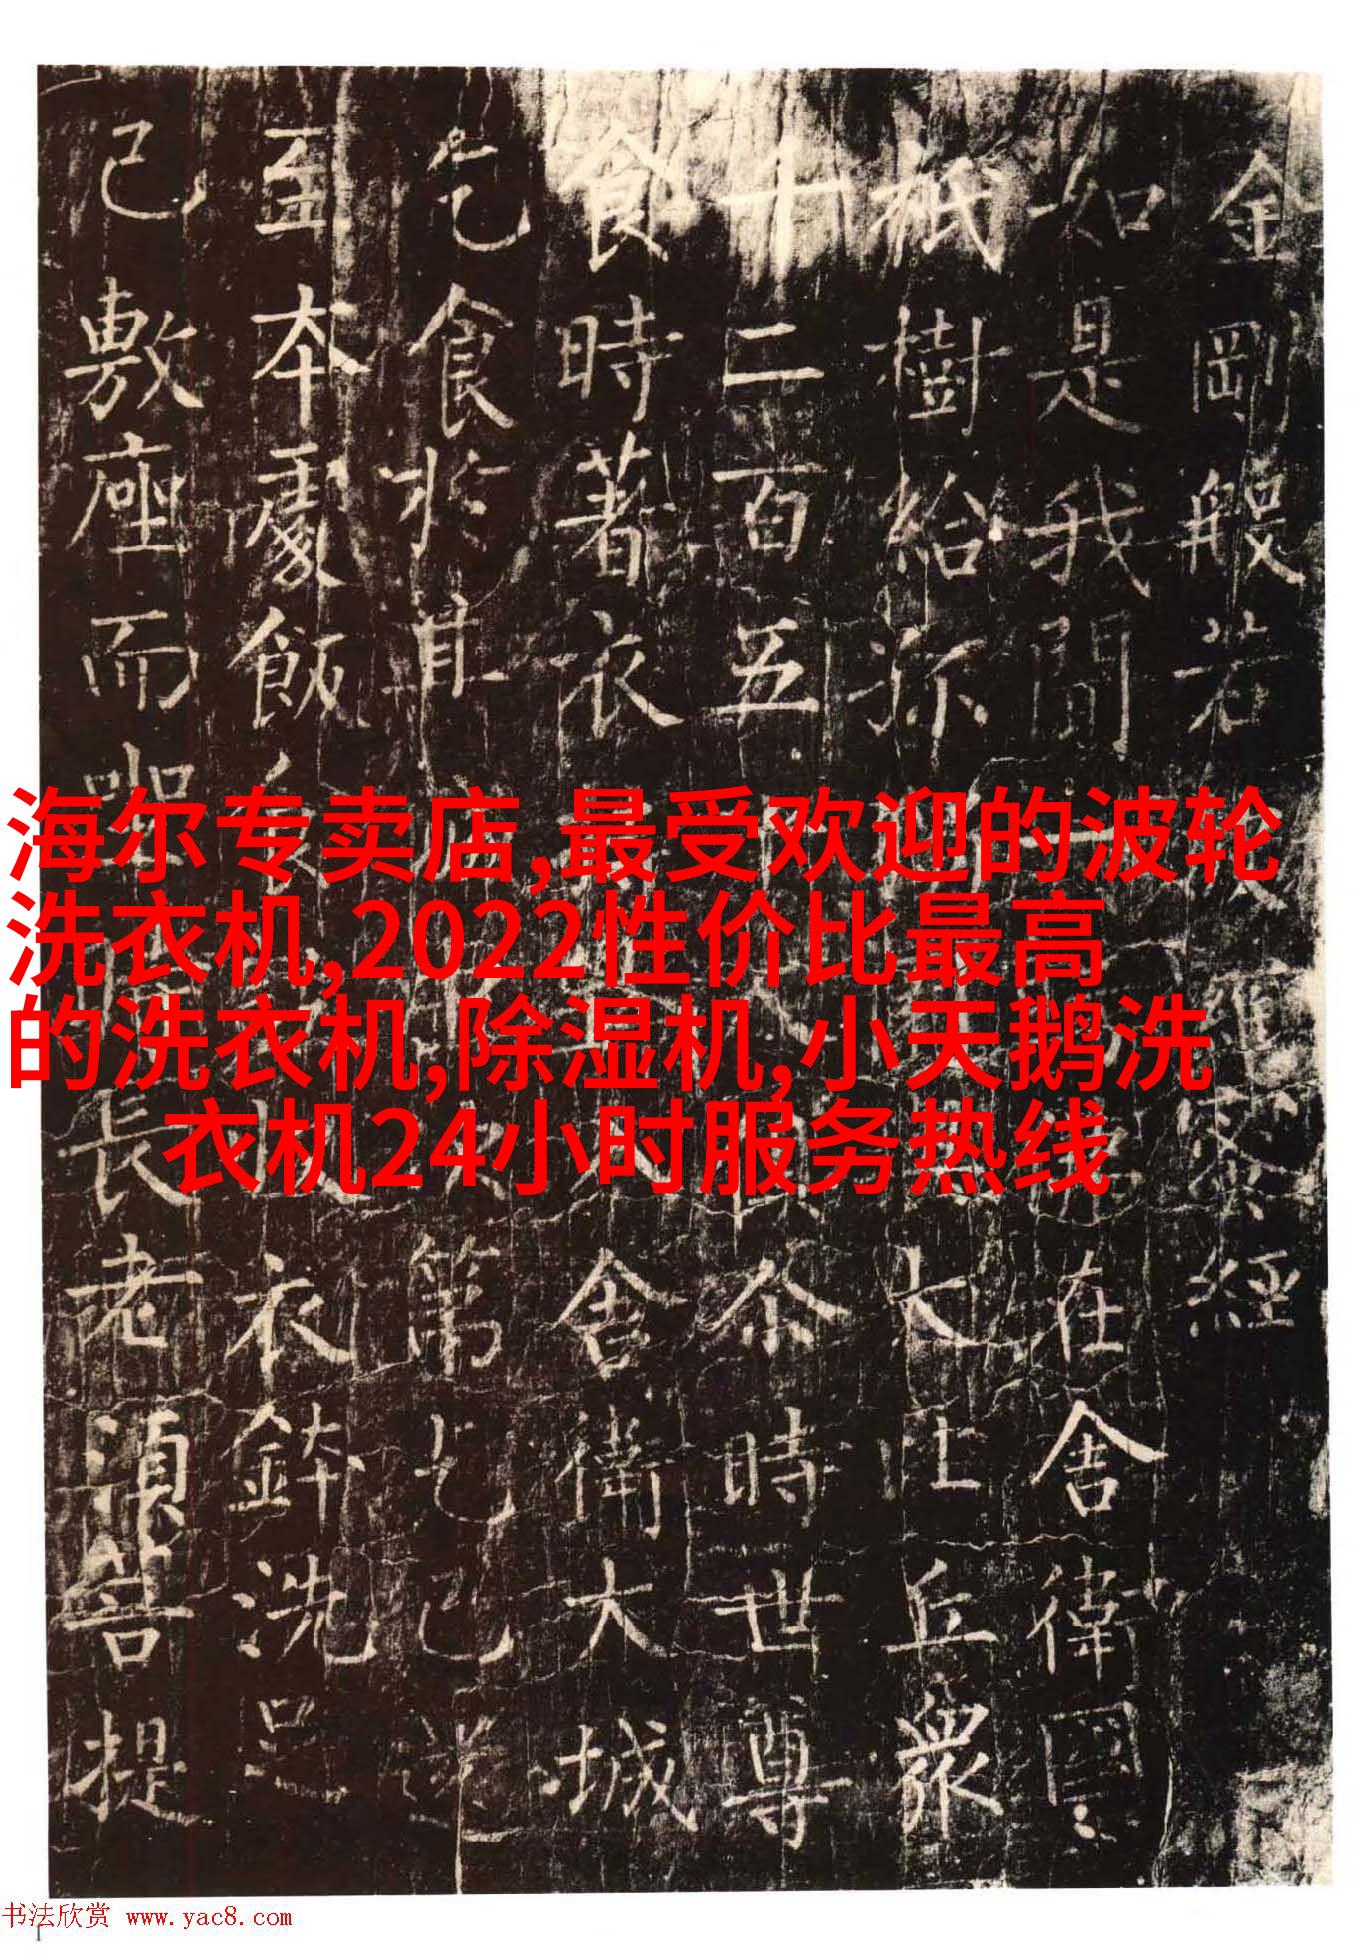 金剛般若蜜經
如是我聞一在舍衛國
祇樹給孤大比丘眾
十二百五尒時世尊
食時著衣舍衛大城
乞食於其第乞已還
至本處飯衣鉢洗足
已敷座而坐長老須菩提
海尔专卖店,最受欢迎的波轮
洗衣机,2022性价比最高
的洗衣机,除湿机,小天鹅洗
衣机24小时服务热线
书法欣赏 www.yac8.com